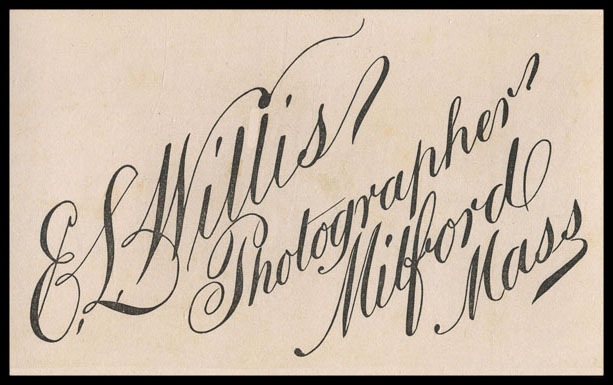 E. L. Willis
Photographer
Milford
Mass